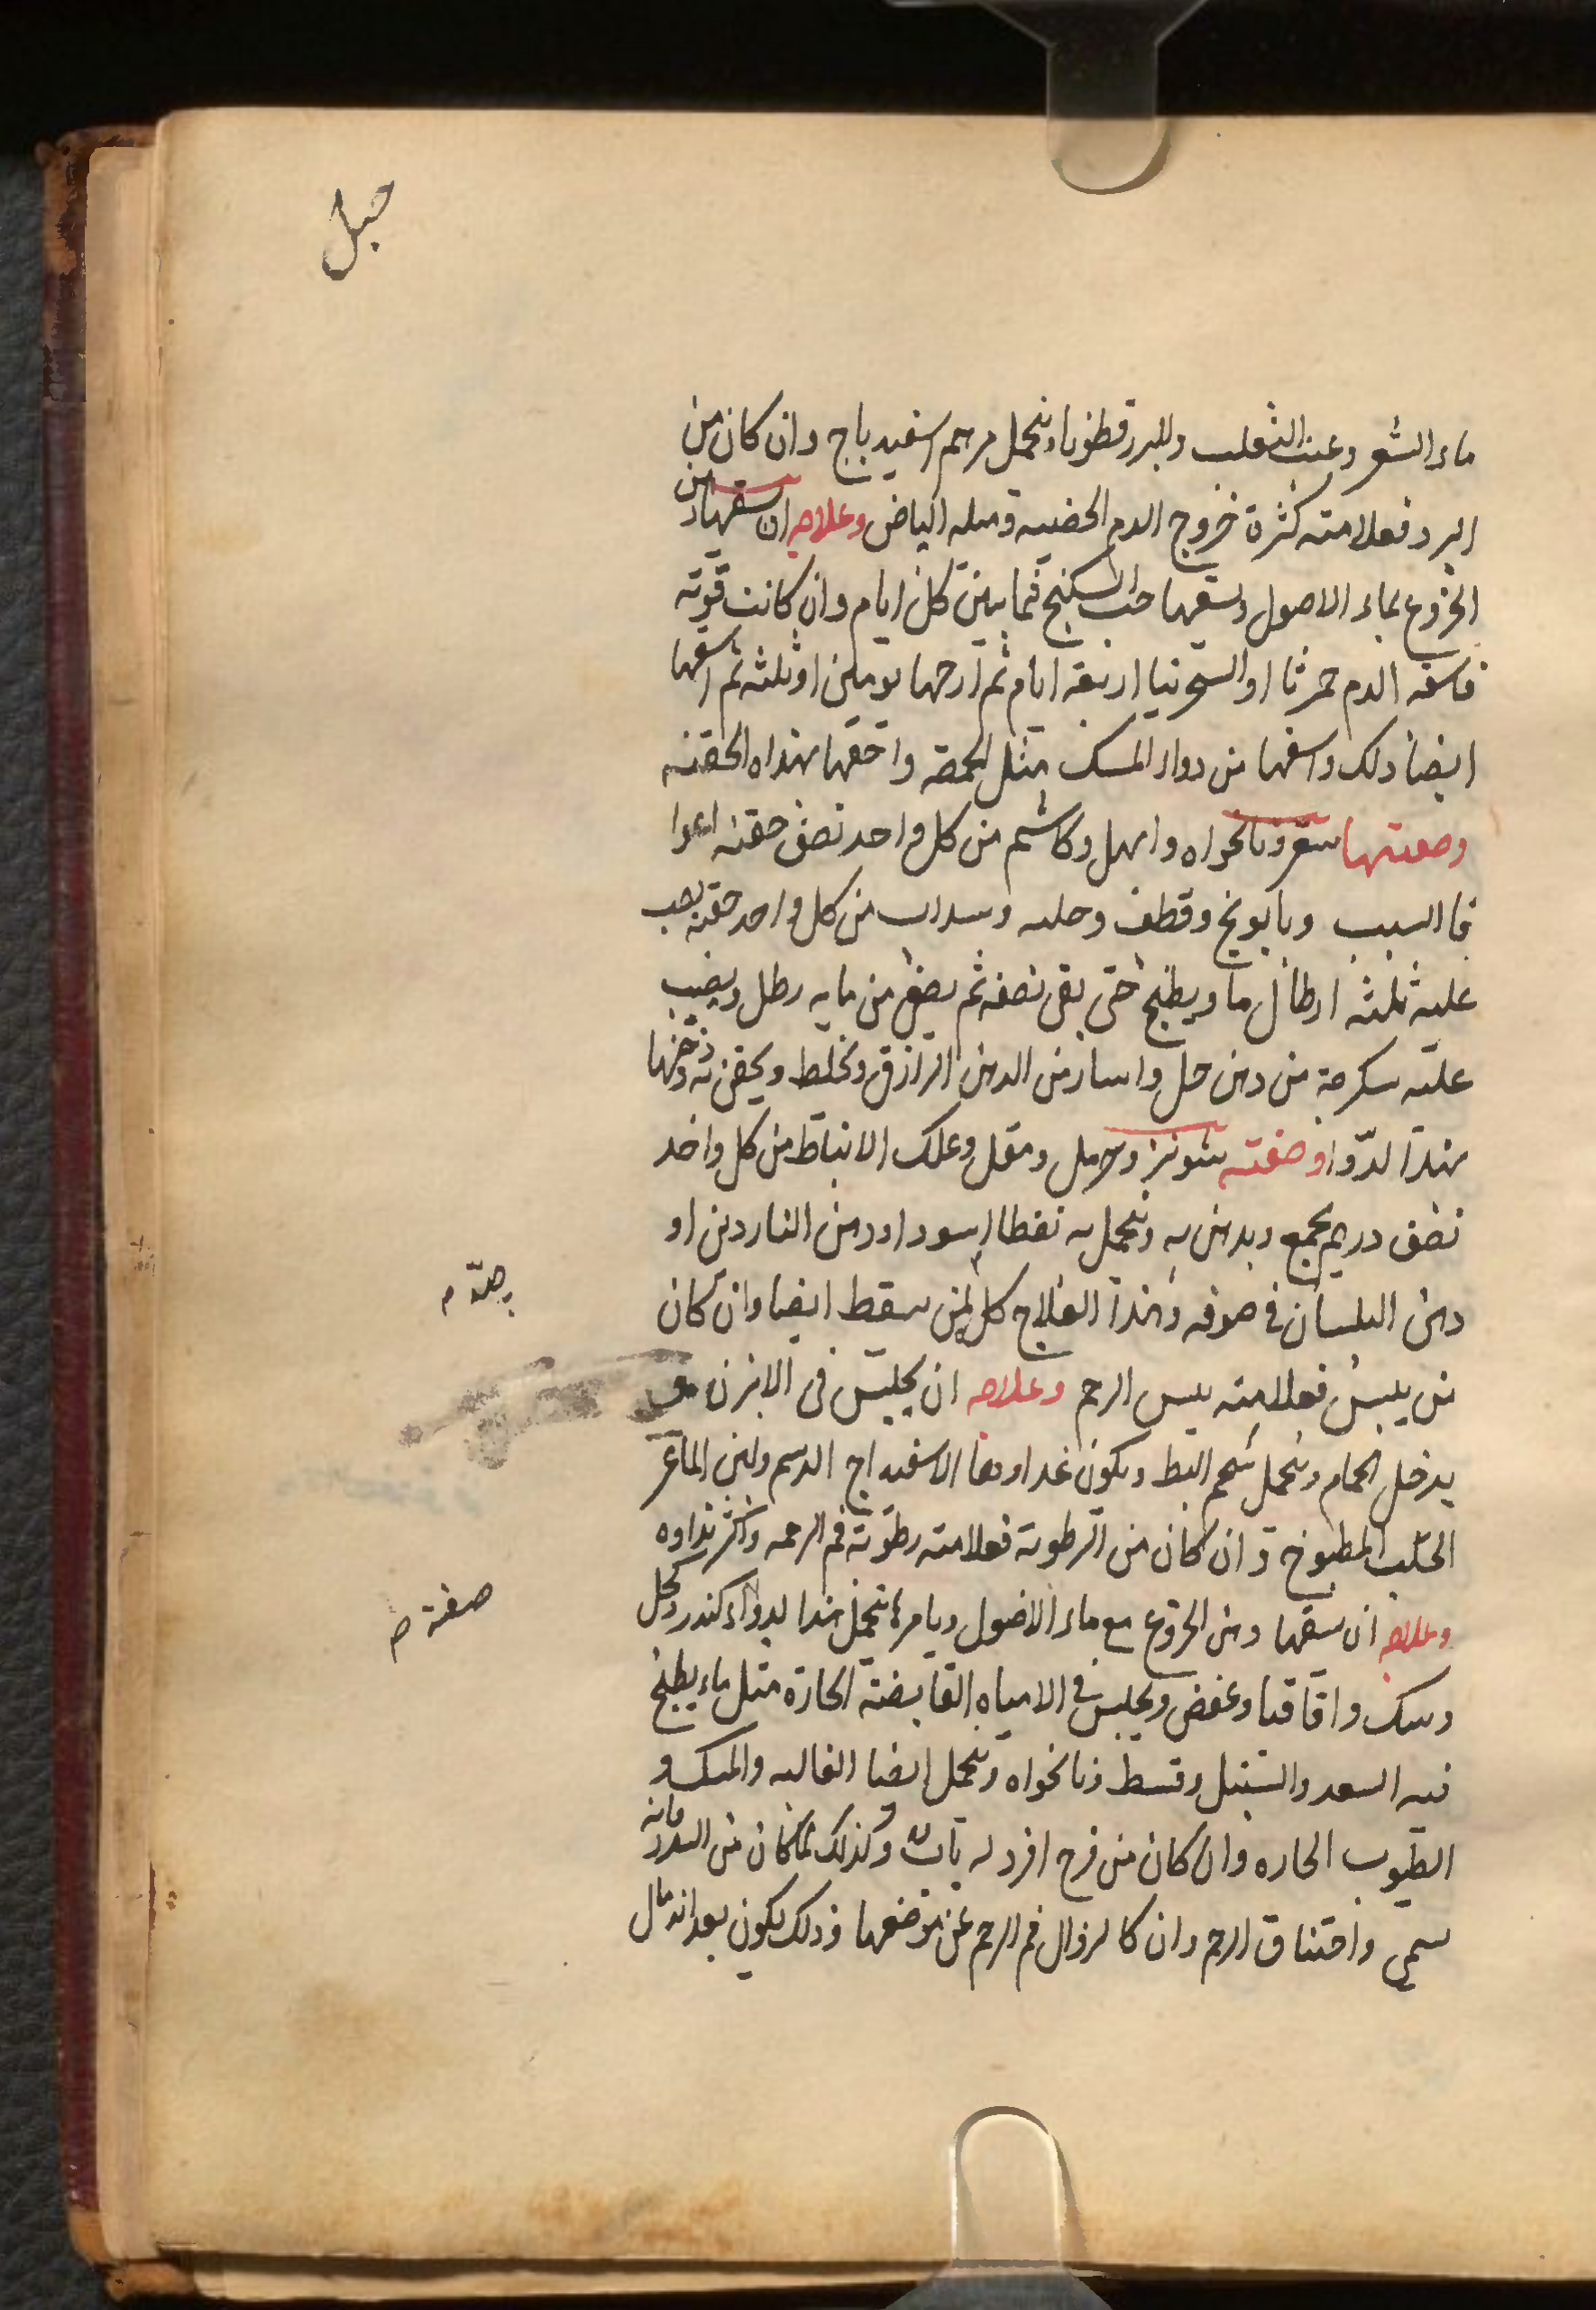 حبل
ماء الشعير وعنب الثعلب وللبزرقطونا وتحمل مرهم اسفيدباج وان كان من
البرد فعلامته كثرة خروج الدم الحيضية وميله البياض وعلاجه ان تسقيها دهن
الخروع بماء الاصول وتسقيها حب السكبنج فيما بين كل ايام وان كانت قوية
فاسقه الدم حمرثا او السجرنيا اربعة ايام ثم ارحها يومين او ثلثة ثم اسقها
ايضا ذلك واسقها من دواء المسك مثل الحمصة واحقنها بهذاه الحقنة
وصفتها سعتر ونانخواه وابهل وكاشم من كل واحد نصف حفنة
وبابونج وقطف وحلبه وسداب من كل واحد حفنة يصب
عليه ثلثة ارطال ماء ويطبخ حتى بقى نصفه ثم يصفى من مايه رطل ويصب
عليه سكرجة من دهن حل واستار من الدهن الرازقى ويخلط ويحقن به ودخنها
بهذا الدوا وصفته شونيز وحرمل ومقل وعلك الانباط من كل واحد
نصف درهم يجمع ويدهن به وتحمل به نفطا اسود اودهن الناردين او
دهن البلسان فى صوفه وهذا العلاج كل لمن يسقط ايضا وان كان
من يبس فعلامته يبس الرحم وعلاجه ان يجلس فى الابزن
يدخل الحمام وتحمل شحم البط ويكون غداوها الاسفيداج الدسم ولبن الماعز
الحلب المطبوخ وان كان من الرطوبة فعلامته رطوبة فم الرحم وكثر نداوه
وعلاجه ان تسقيها دهن الخروع مع ماء الاصول ويامرها تحمل هذا الدواء كندر وكحل
وسك واقاقيا وعفص ويجلس فى الامياه القابضة الحارة مثل ماء يطبخ
فيه السعد والسنبل وقسط ونانخواه وتحمل ايضا الغاليه والمسك و
الطيوب الحاره وان كان من فرح افرد له باب وكذلك كان من السدد فانه
سمى واختناق الرحم وان كا لزوال فم الرحم عن موضعها وذلك يكون بعد اندمال
صفة م